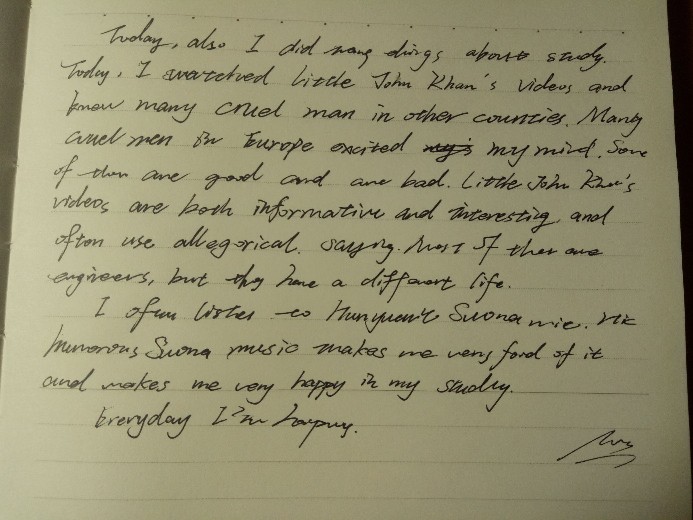 Today, also I did many things about study.
Today, I watched Little John Khan's videos and
know many cruel man in other counties. Many
cruel men in Europe excited my mind. Some
of them are good and are bad. Little John Khan's
videos are both informative and interesting and
often use allegorical saying. Most of them are
engineers, but they have a different life.
I often listen to Hunyuan's Suona mic. His
humorous Suona music makes me very fond of it
and makes me very happy in my study.
Everyday I'm happy.